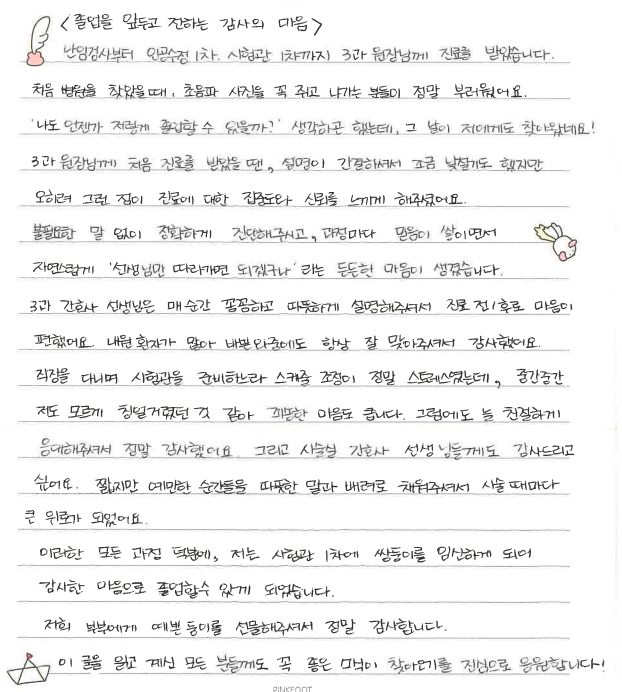 <졸업을 앞두고 전하는 감사의 마음>
난임검사부터 인공수정 1차, 시험관 1차까지 3과 원장님께 진료를 받았습니다.
처음 병원을 찾았을 때, 초음파 사진을 꼭 쥐고 나가는 분들이 정말 부러웠어요.
'나도 언젠가 저렇게 졸업할 수 있을까?' 생각하곤 했는데, 그 날이 저에게도 찾아왔네요!
3과 원장님께 처음 진료를 받았을 땐, 설명이 간결하셔서 조금 낯설기도 했지만
오히려 그런 점이 진료에 대한 집중도와 신뢰를 느끼게 해주셨어요.
불필요한 말 없이 정확하게 진단해주시고, 과정마다 믿음이 쌓이면서
자연스럽게 '선생님만 따라가면 되겠구나' 라는 든든한 마음이 생겼습니다.
3과 간호사 선생님은 매 순간 꼼꼼하고 따뜻하게 설명해주셔서 진료 전/후로 마음이
편했어요. 내원 환자가 많아 바쁜 와중에도 항상 잘 맞아주셔서 감사했어요.
직장을 다니며 시험관을 준비하느라 스케줄 조정이 정말 스트레스였는데, 중간중간
저도 모르게 칭얼거렸던 것 같아 죄송한 마음도 큽니다. 그럼에도 늘 친절하게
응대해주셔서 정말 감사했어요. 그리고 시술실 간호사 선생님들께도 감사드리고
싶어요. 짧지만 예민한 순간들을 따뜻한 말과 배려로 채워주셔서 시술 때마다
큰 위로가 되었어요.
이러한 모든 과정 덕분에, 저는 시험관 1차에 쌍둥이를 임신하게 되어
감사한 마음으로 졸업할수 있게 되었습니다.
저희 부부에게 예쁜 둥이를 선물해주셔서 정말 감사합니다.
이 글을 읽고 계신 모든 분들께도 꼭 좋은 소식이 찾아오기를 진심으로 응원합니다!
PINKFOOT